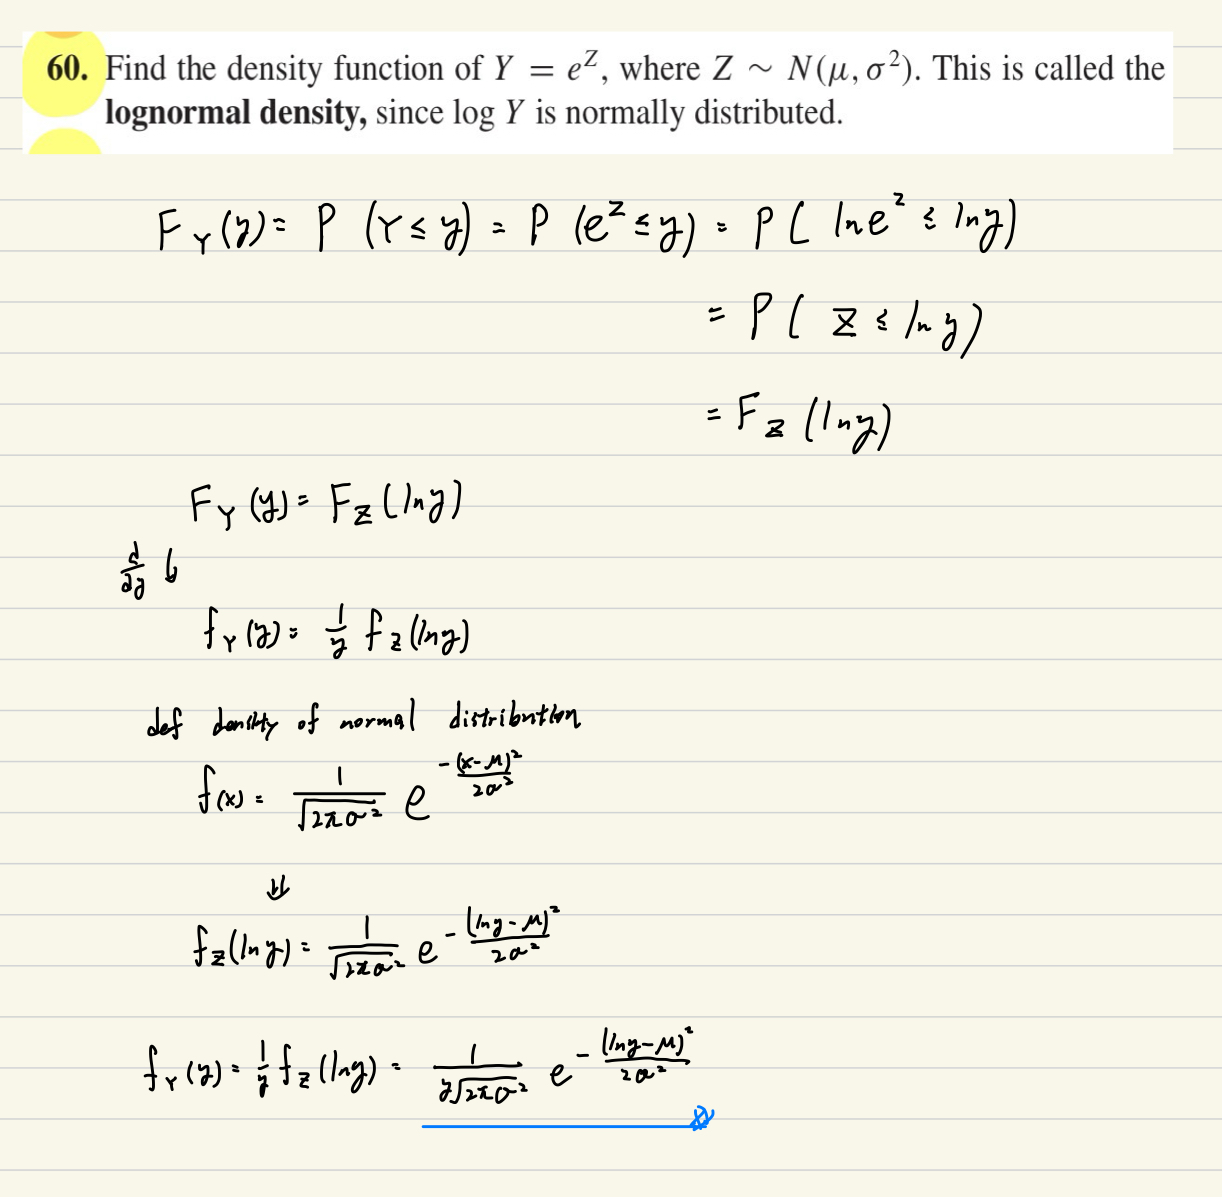 60. Find the density function of Y = e^Z, where Z ∼ N(μ, σ²). This is called the
lognormal density, since log Y is normally distributed.
F_Y(y) = P(Y ≤ y) = P(e^Z ≤ y) = P(ln e^Z ≤ ln y)
= P(Z ≤ ln y)
= F_Z(ln y)
F_Y(y) = F_Z(ln y)
d/dy ↓
f_Y(y) = 1/y f_Z(ln y)
def density of normal distribution
f(x) = 1/√(2πσ²) e^(-(x-μ)²/2σ²)
⇓
f_Z(ln y) = 1/√(2πσ²) e^(-(ln y-μ)²/2σ²)
f_Y(y) = 1/y f_Z(ln y) = 1/(y√(2πσ²)) e^(-(ln y-μ)²/2σ²)